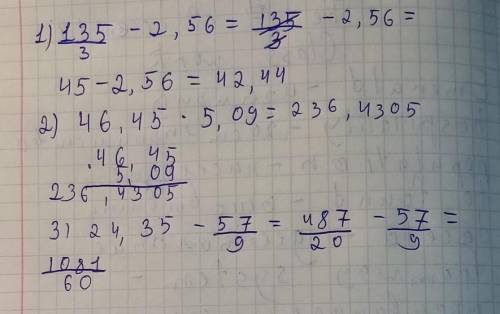 1) 135/3 - 2,56 = 135/3 - 2,56 =
45 - 2,56 = 42,44
2) 46,45 · 5,09 = 236,4305
46,45
5,09
236,4305
3) 24,35 - 57/9 = 487/20 - 57/9 =
1081/60